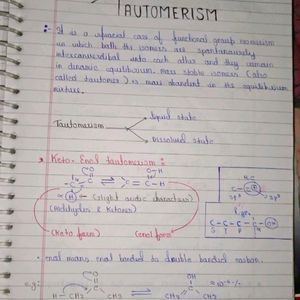 TAUTOMERISM
:- It is a special case of functional group isomerism
in which both the isomers are spontaneously
interconvertible into each other and they remain
in dynamic equilibrium. More stable isomer (also
called tautomer) is more abundant in the equilibrium
mixture.
Liquid state
Tautomerism
Dissolved state
Keto-Enol tautomerism :-
O
O-H
C = C - H
α H → (slight acidic character)
(Aldehydes & Ketones)
(Keto form) (enol form)
• enol means enol bonded to double bonded carbon.
e.g:
O OH
H-CH2 C CH3 ⇌ CH2 C CH3